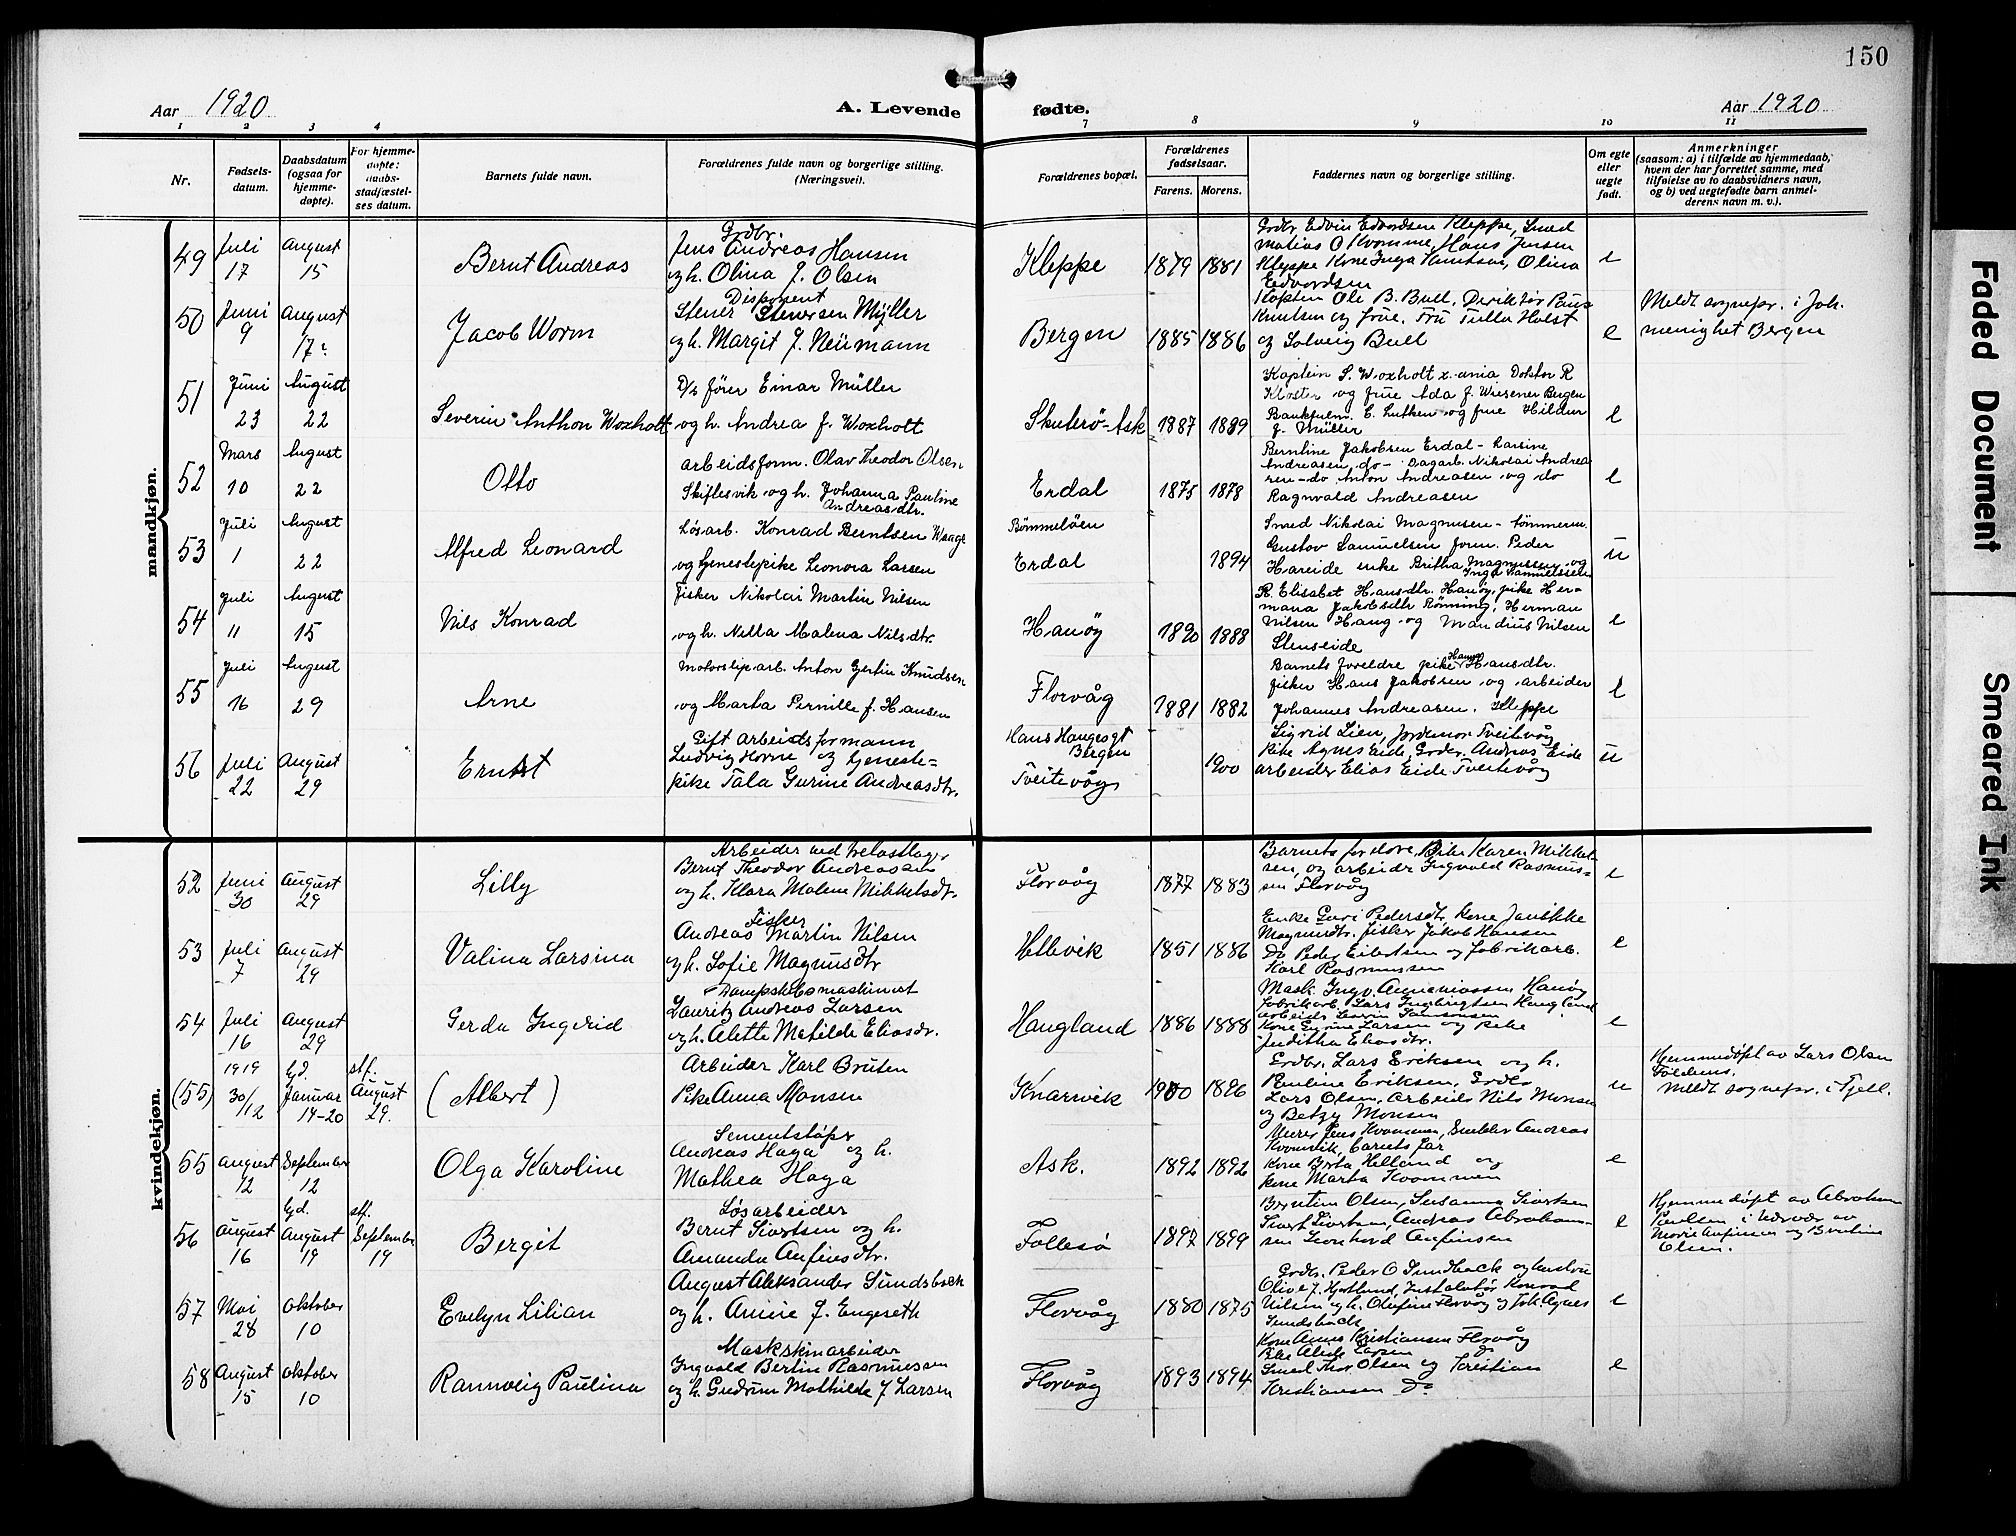 150
Aar 1920
A. Levende fødte.
Aar 1920
1 2 3 4 7 8 9 10 11
Nr.
Fødsels-
datum.
Daabsdatum
(ogsaa for
hjemme-
døpte).
For hjemme-
døpte:
daabs-
stadfæstel-
ses datum.
Barnets fulde navn.
Forældrenes fulde navn og borgerlige stilling.
(Næringsvei).
Forældrenes bopæl.
Forældrenes
fødselsaar.
Farens. Morens.
Faddernes navn og borgerlige stilling.
Om egte
eller
uegte
født.
Anmerkninger
(saasom: a) i tilfælde av hjemmedaab,
hvem der har forrettet samme, med
tilføielse av to daabsvidners navn,
og b) ved uegtefødte barn anmel-
derens navn m. v.).
mandkjøn.
49
Juli
17
August
15
Bernt Andreas
Grdbr.
Jens Andreas Hansen
og h. Olina J. Olsen
Kleppe
1879 1881
Grdbr Edvin Edvardsen Kleppe, Smed
Matias O Kvamme, Hans Jensen
Kleppe Kone Inga Knutsen, Olina
Edvardsen
e
50
Juni
9
August
17
Jacob Worm
Disponent
Stener Stenersen Müller
og h. Margit J. Neumann
Bergen
1885 1886
Kaptein Ole B. Bull, Direktør Paus
Knutsen og frue, Fru Tulla Holst
og Solveig Bull
e
Meldt sognepr. i Joh.
menighet Bergen
51
Juni
23
August
22
Severin Anthon Woxholt
D/s fører Einar Müller
og h. Andrea f. Woxholt
Skuterö-Ask
1887 1889
Kaptein S. Woxholt x-ania Doktor R
Kloster og frue Ada f. Wiesener Bergen
Bankfulm. E. Lutken og frue Hildur
f. Müller
e
52
Mars
10
August
22
Otto
Arbeidsform. Olav Theodor Olsen
Skiftesvik og h. Johanna Pauline
Andreasdtr.
Erdal
1875 1878
Berntine Jakobsen Erdal - Larsine
Andreasen do - Dagarb. Nikolai Andrea
sen - do Anton Andreasen og do
Ragnvald Andreasen
e
53
Juli
1
August
22
Alfred Leonard
Løsarb. Konrad Berntsen Waage
og tjenestepike Leonora Larsen
Bømmeløen
Erdal
1894
Smed Nikolai Magnusen - tømmerm.
Gustav Samuelsen form. Peder
Hareide enke Britha Magnussen og
Inga Sammelssen
u
54
Juli
11
August
15
Nils Konrad
Fisker Nikolai Martin Nilsen
og h. Nilla Malena Nilsdtr.
Hanöy
1890 1888
R. Elisabet Hansdtr. Hanöy, pike Her-
mana Jakobsdtr Rønning, Herman
Nilsen Haug og Mandius Nilsen
Stenseide
e
55
Juli
16
August
29
Arne
Motorsliparb. Anton Gertin Knudsen
og Marta Pernille f. Hansen
Florvåg
1881 1882
Barnets foreldre pike Hansdtr.
fisker Hans Jakobsen og arbeider
Johannes Andreasen. Kleppe
e
56
Juli
22
August
29
Ernst
Gift arbeidsformann
Ludvig Horne og tjeneste-
pike Tala Gurine Andreasdtr.
Hans Haugesgt
Bergen
Tveitevåg
1900
Sigrid Lien, Jordmor Tveitvåg
Pike Agnes Eide, Grdbr. Andreas Eide
arbeider Elias Eide Tveitevåg
u
kvindekjøn.
52
Juni
30
August
29
Lilly
Arbeider ved
Bernt Theodor Andreassen
og h. Klara Malene Mikkelsdtr.
Florvåg
1877 1883
Barnets foreldre, Pike Karen Mikkel-
sen, og arbeider Ingvald Rasmus-
sen Florvåg
e
53
Juli
7
August
29
Valina Larsina
Fisker
Andreas Martin Nilsen
og h. Sofie Magnusdtr
Hellevik
1851 1886
Enke Guri Pedersdtr, Kone Jannikke
Magnusdtr. fisker Jakob Hansen
Do Peder Eilertsen og fabrikarb.
Karl Rasmussen
e
54
Juli
16
August
29
Gerda Ingerid
Dampskibsmaskinist
Lauritz Andreas Larsen
og h. Alette Matilde Eliasdr.
Haugland
1886 1888
Mask. Ingv. Annaniassen Hanöy
fabrikarb. Lars Ingebrigtsen Haugland
arbeider
Kone Gurine Larsen og pike
Juditha Eliasdtr.
e
(55)
1919
30/12
Gd.
Januar
14-20
stf.
August
29.
(Albert)
Arbeider Karl Bruten
Pike Anna Monsen
Knarvik
1900 1896
Grdbr. Lars Eriksen og h.
Pauline Eriksen, Grdbr
Lars Olsen, Arbeider Nils Monsen
og Betzy Monsen
u
Hjemmedøpt av Lars Olsen
Foldens.
Meldt sognepr. i Fjell.
55
August
12
September
12
Olga Karoline
Sementstøper
Andreas Haga og h.
Mathea Haga
Ask.
1892 1892
Murer Jens Kvammen, Snekker Andreas
Kvamsvik, barnets far
Kone Brita Helland og
pike Marta Kvammen
e
56
August
16
Gd.
August
19
stf.
September
19
Bergit
Løsarbeider
Bernt Sivertsen og h.
Amanda Anfinsdtr.
Follesø
1897 1899
Berntine Olsen, Susanna Sivertsen
Sivert Sivertsen, Andreas Abraham-
sen Leonhard Anfinsen
e
Hjemmedøpt av Abraham
Paulsen i nærvær av
Marie Anfinsen og Berntine
Olsen.
57
Mai
28
Oktober
10
Evelyn Lilian
August Aleksander Sundsback
og h. Annie J. Engseth
Florvåg
1880 1875
Grdbr. Peder O Sundback og hustru
Olive J. Hjortland, Installatør Konrad
Nilsen og h. Olufine Florvåg og frk. Agnes
Sundsback
e
58
August
15
Oktober
10
Rannveig Paulina
Maskskinarbeider
Ingvald Bertin Rasmussen
og h. Gudrun Mathilde J Larsen
Florvåg
1893 1894
Kone Anna Kristiansen Florvåg
Pike Alida Larsen do
Smed Thor Olsen og Kristian
Kristiansen do
e
Faded Document
Smeared Ink